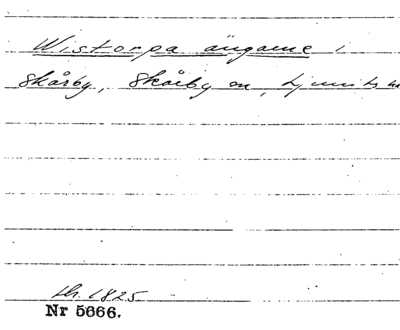 Wistorpa ängarne i
Skårby, Skårby sn, Ljunits h
Lh. 1825
Nr 5666.